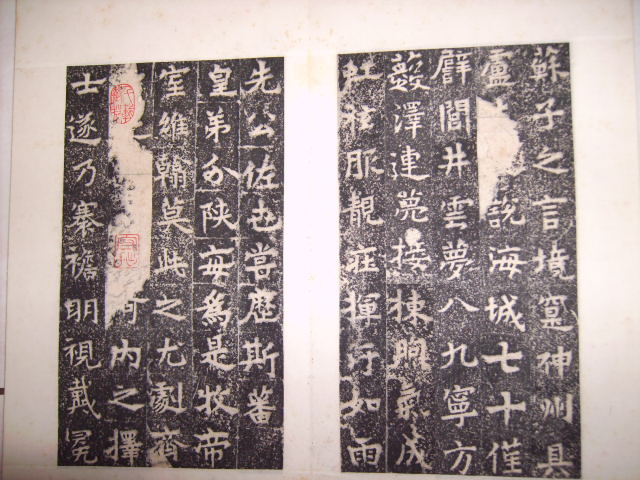 蘇子之言境寔神州具
盧說海城七十僅
譬閭井雲夢八九寧方
藪澤連甍接棟呴氣成
袨服靚莊揮汗如雨
先公佐世嘗歷斯蕃
皇弟分陝每爲是牧帝
室維翰莫此之尤劇齊
河内之擇
士遂乃褰襜明視戴冕